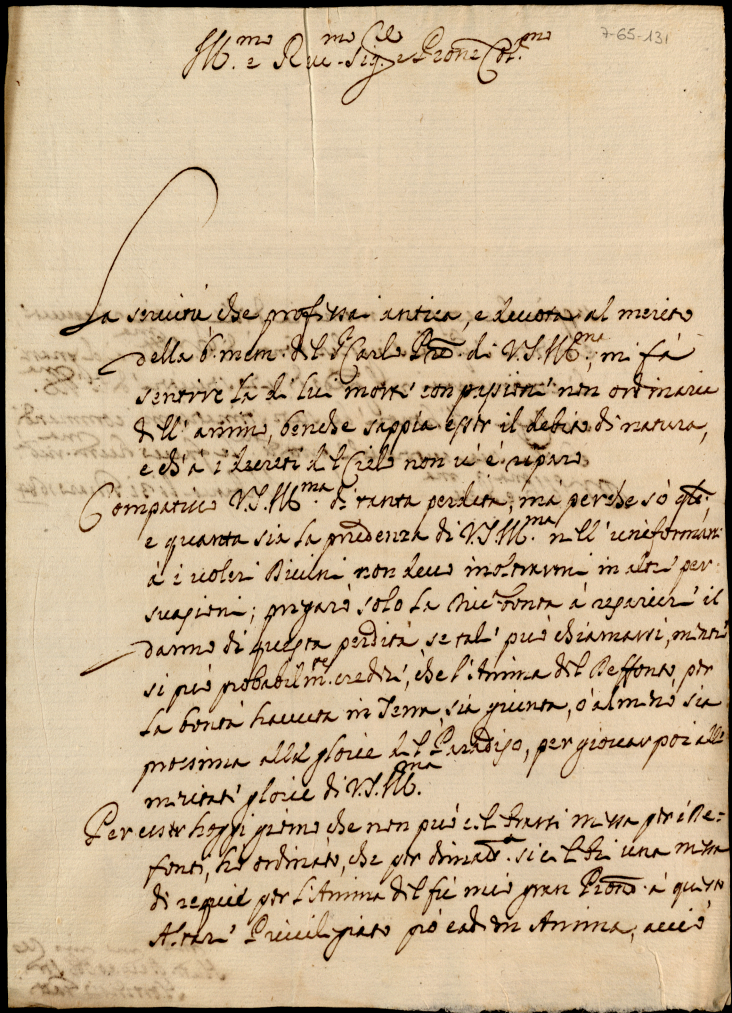 7-65-131
Ill.mo e Rev.mo Sig.re e Pron Col.mo
La servitù che professai antica, e devota al merito
della b. mem. del Carlo di V.S. Ill.ma, mi fà
sentire la di lui morte con passione non ordinaria
dell'animo, benche sappia esser il debito di natura,
e ch'à i decreti del Cielo non v'è riparo
Compatisco V.S. Ill.ma di tanta perdita; mà perche sò
e quanta sia la prudenza di V.S. Ill.ma nell'uniformarsi
à i voleri Divini non devo inoltrarmi in altre per-
suasioni; pregarò solo la bontà à reparare il
danno di questa perdita, se tale può chiamarsi, mentre
si può probabilm.te credere, che l'Anima del Deffonto, per
la bontà havuta in Terra, sia giunta, ò almeno sia
prossima alle glorie del Paradiso, per giovar poi alle
meritate glorie di V.S. Ill.ma
Per esser hoggi giorno che non può celebrarsi messa per i De-
fonti, hò ordinato, che per dimani si celebri una messa
di requie per l'Anima del fù mio gran Prone à questo
Altare Privilegiato pro Anima, acciò